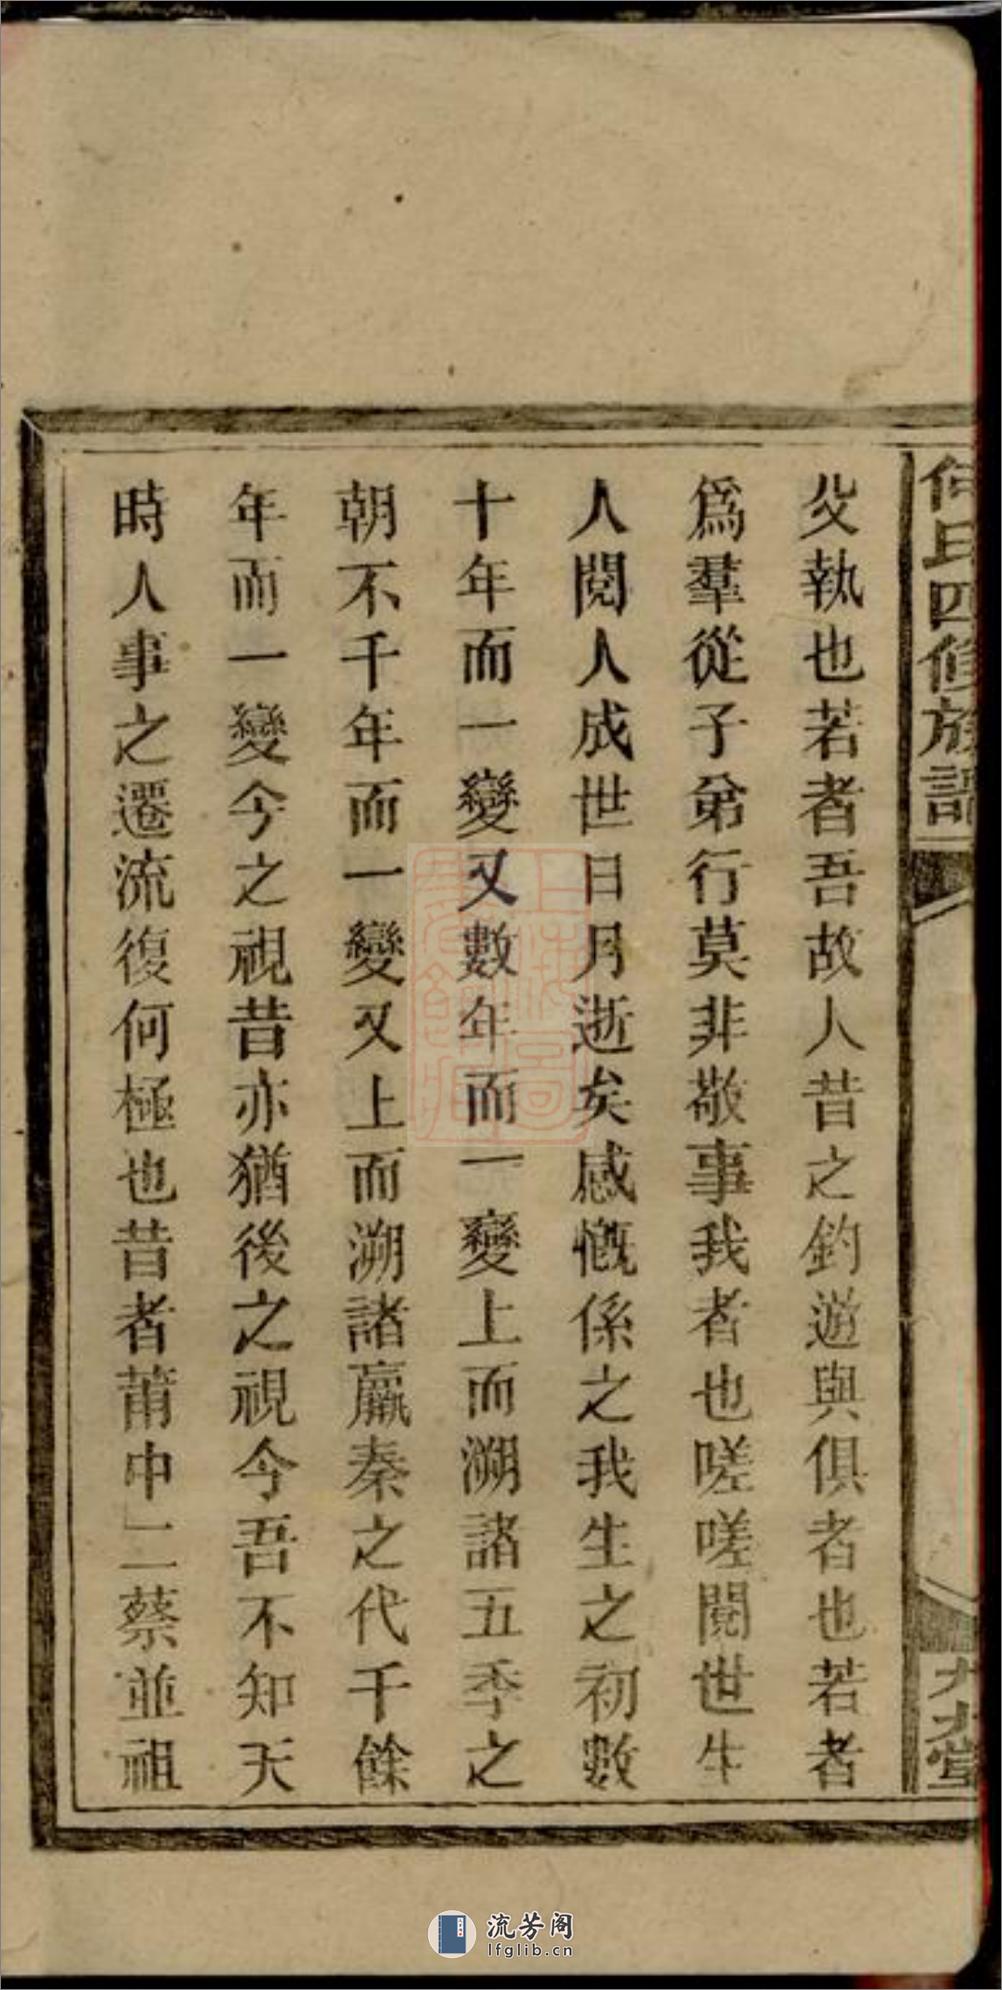 何氏四修族譜
父執也若者吾故人昔之釣遊與俱者也若者
爲羣從子弟行莫非敬事我者也嗟嗟閱世生
人閱人成世日月逝矣感慨係之我生之初數
十年而一變又數年而一變上而溯諸五季之
朝不千年而一變又上而溯諸羸秦之代千餘
年而一變今之視昔亦猶後之視今吾不知天
時人事之遷流復何極也昔者莆中二蔡並祖
流芳阁
lfglib.cn